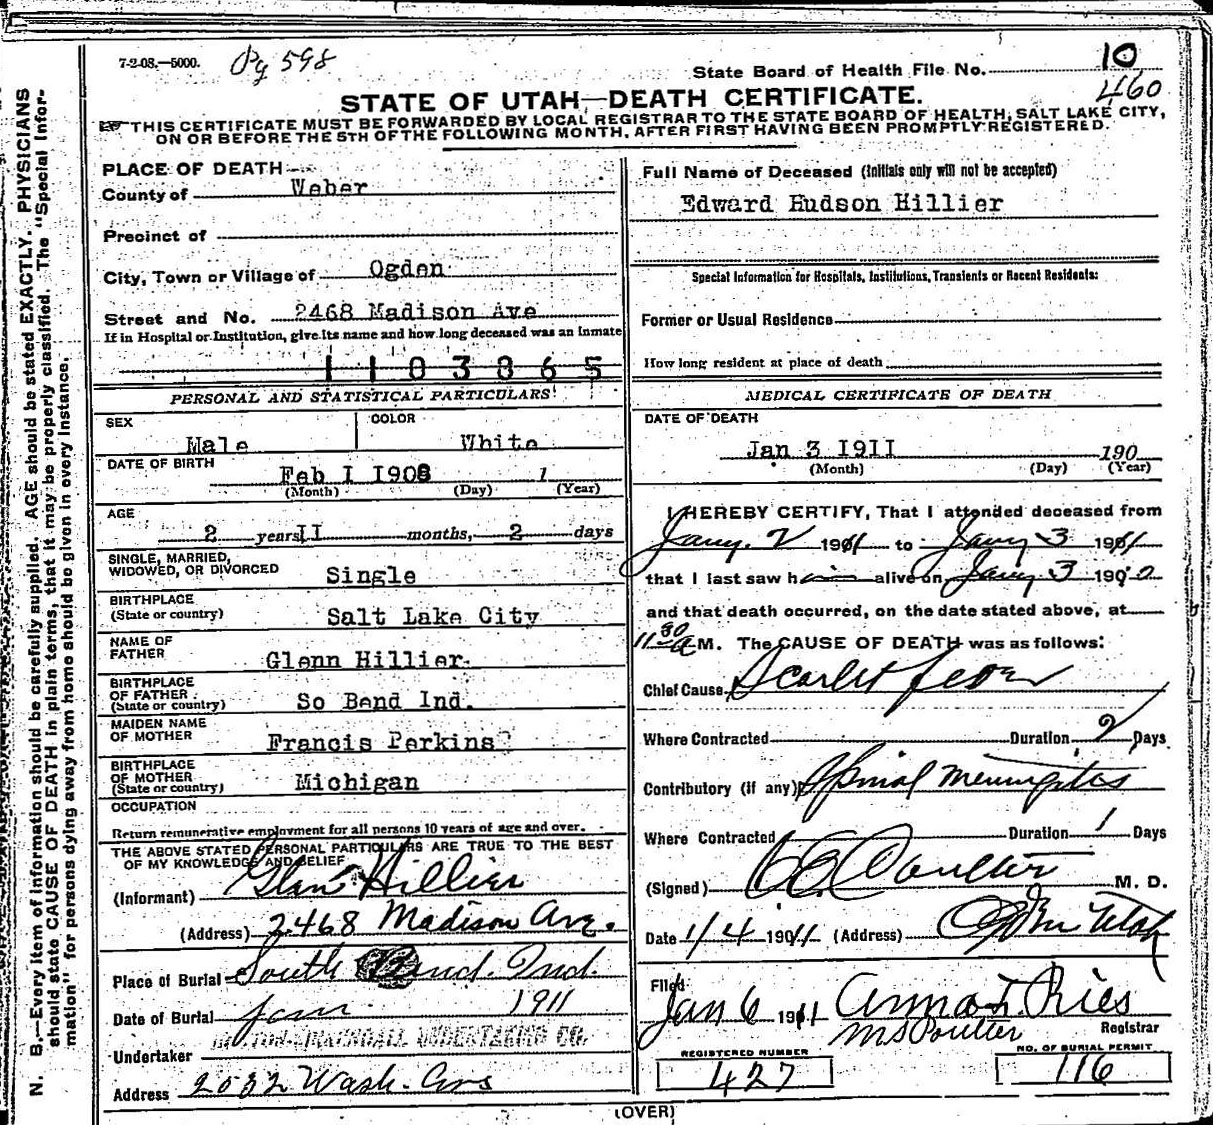 7-2-08.—5000. Pg 598
State Board of Health File No. 10
460
STATE OF UTAH—DEATH CERTIFICATE.
THIS CERTIFICATE MUST BE FORWARDED BY LOCAL REGISTRAR TO THE STATE BOARD OF HEALTH, SALT LAKE CITY,
ON OR BEFORE THE 5TH OF THE FOLLOWING MONTH, AFTER FIRST HAVING BEEN PROMPTLY REGISTERED.
N. B.—Every item of information should be carefully supplied. AGE should be stated EXACTLY. PHYSICIANS
should state CAUSE OF DEATH in plain terms, that it may be properly classified. The "Special Infor-
mation" for persons dying away from home should be given in every instance.
PLACE OF DEATH—
County of Weber
Precinct of
City, Town or Village of Ogden
Street and No. 2468 Madison Ave
If in Hospital or Institution, give its name and how long deceased was an inmate
1103865
PERSONAL AND STATISTICAL PARTICULARS
SEX Male COLOR White
DATE OF BIRTH Feb I 1908 1
(Month) (Day) (Year)
AGE
2 years II months, 2 days
SINGLE, MARRIED,
WIDOWED, OR DIVORCED Single
BIRTHPLACE
(State or country) Salt Lake City
NAME OF
FATHER Glenn Hillier
BIRTHPLACE
OF FATHER
(State or country) So Bend Ind.
MAIDEN NAME
OF MOTHER Francis Perkins
BIRTHPLACE
OF MOTHER
(State or country) Michigan
OCCUPATION
Return remunerative employment for all persons 10 years of age and over.
THE ABOVE STATED PERSONAL PARTICULARS ARE TRUE TO THE BEST
OF MY KNOWLEDGE AND BELIEF
(Informant) Glen Hillier
(Address) 2468 Madison Ave.
Place of Burial South Bend. Ind.
Date of Burial Jan 1911
Undertaker UNDERTAKING CO.
Address 2032 Wash. Ave
Full Name of Deceased (Initials only will not be accepted)
Edward Hudson Hillier
Special Information for Hospitals, Institutions, Transients or Recent Residents:
Former or Usual Residence
How long resident at place of death
MEDICAL CERTIFICATE OF DEATH
DATE OF DEATH
Jan 3 1911 190
(Month) (Day) (Year)
I HEREBY CERTIFY, That I attended deceased from
Jany. 2 1911 to Jany 3 1911
that I last saw him alive on Jany 3 190
and that death occurred, on the date stated above, at
11 30 a M. The CAUSE OF DEATH was as follows:
Chief Cause Scarlet fever
Where Contracted Duration 2 Days
Contributory (if any) Spinal meningitis
Where Contracted Duration 1 Days
(Signed) Coulter M. D.
Date 1/4 1911 (Address) Ogden Utah
Filed
Jan 6 1911 Anna T. Ries
Registrar
REGISTERED NUMBER 427
NO. OF BURIAL PERMIT 116
(OVER)